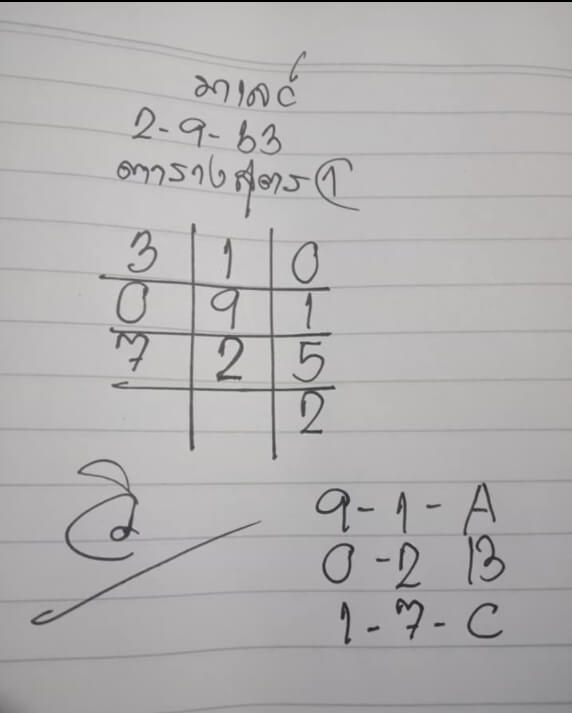 มาเลย์
2-9-63
ตารางสูตร 1
3 1 0
0 9 1
7 2 5
2
9-1-A
0-2 B
1-7-C